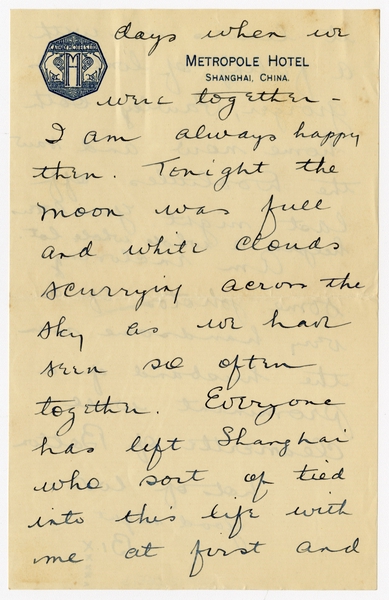 days when we
METROPOLE HOTEL
SHANGHAI, CHINA.
were together -
I am always happy
then. Tonight the
moon was full
and white clouds
scurrying across the
sky as we have
seen so often
together. Everyone
has left Shanghai
who sort of tied
into this life with
me at first and